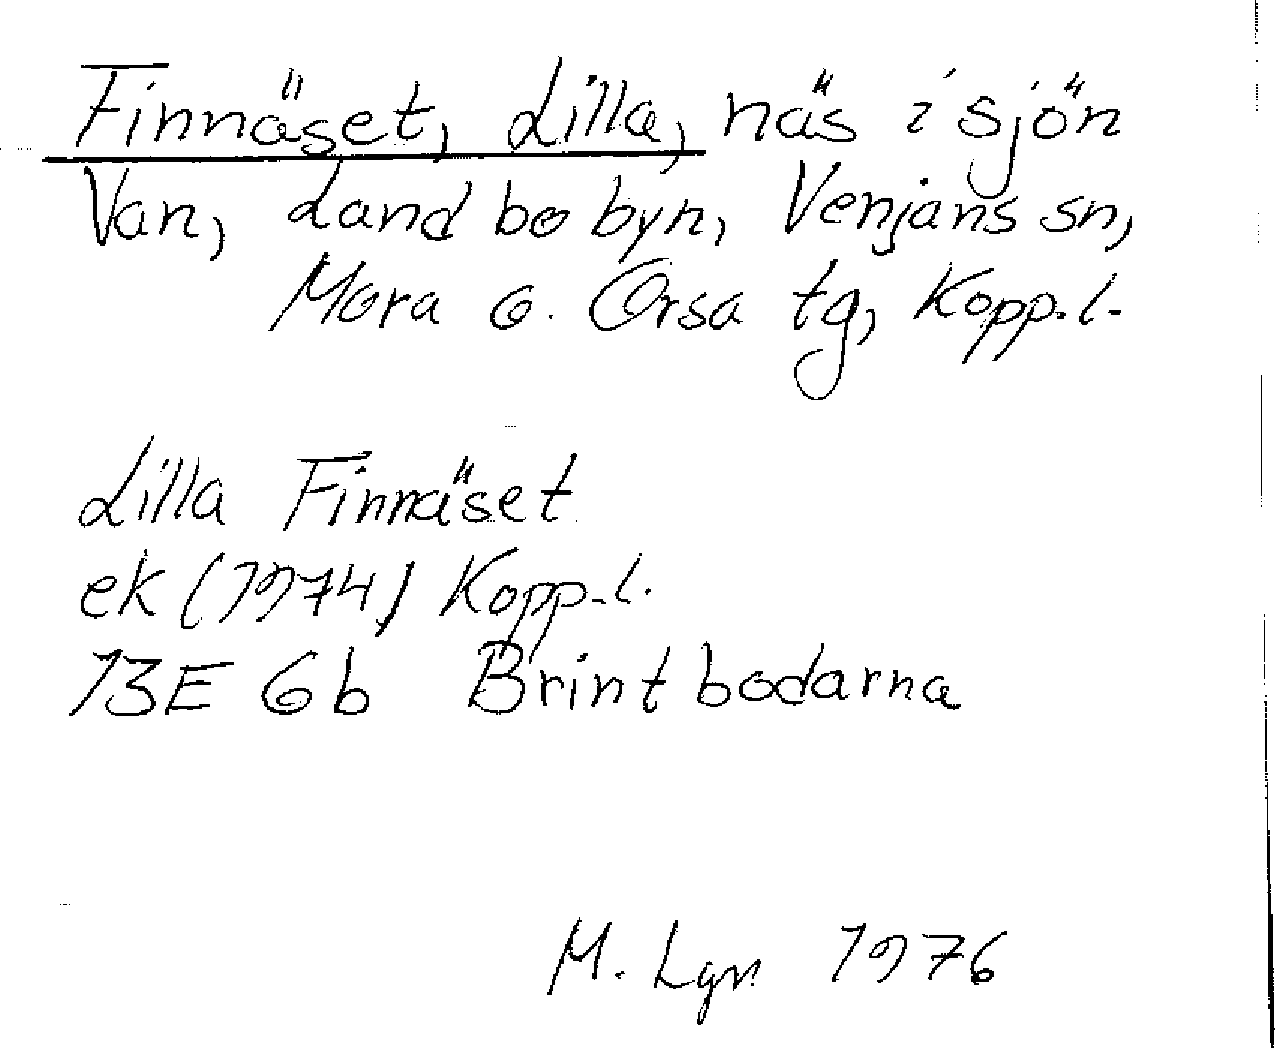 Finnäset, Lilla, näs i sjön
Van, Landbobyn, Venjans sn,
Mora o. Orsa tg, Kopp.l.
Lilla Finnäset
ek (1974) Kopp.l.
13E 6b Brintbodarna
M. Lgn 1976